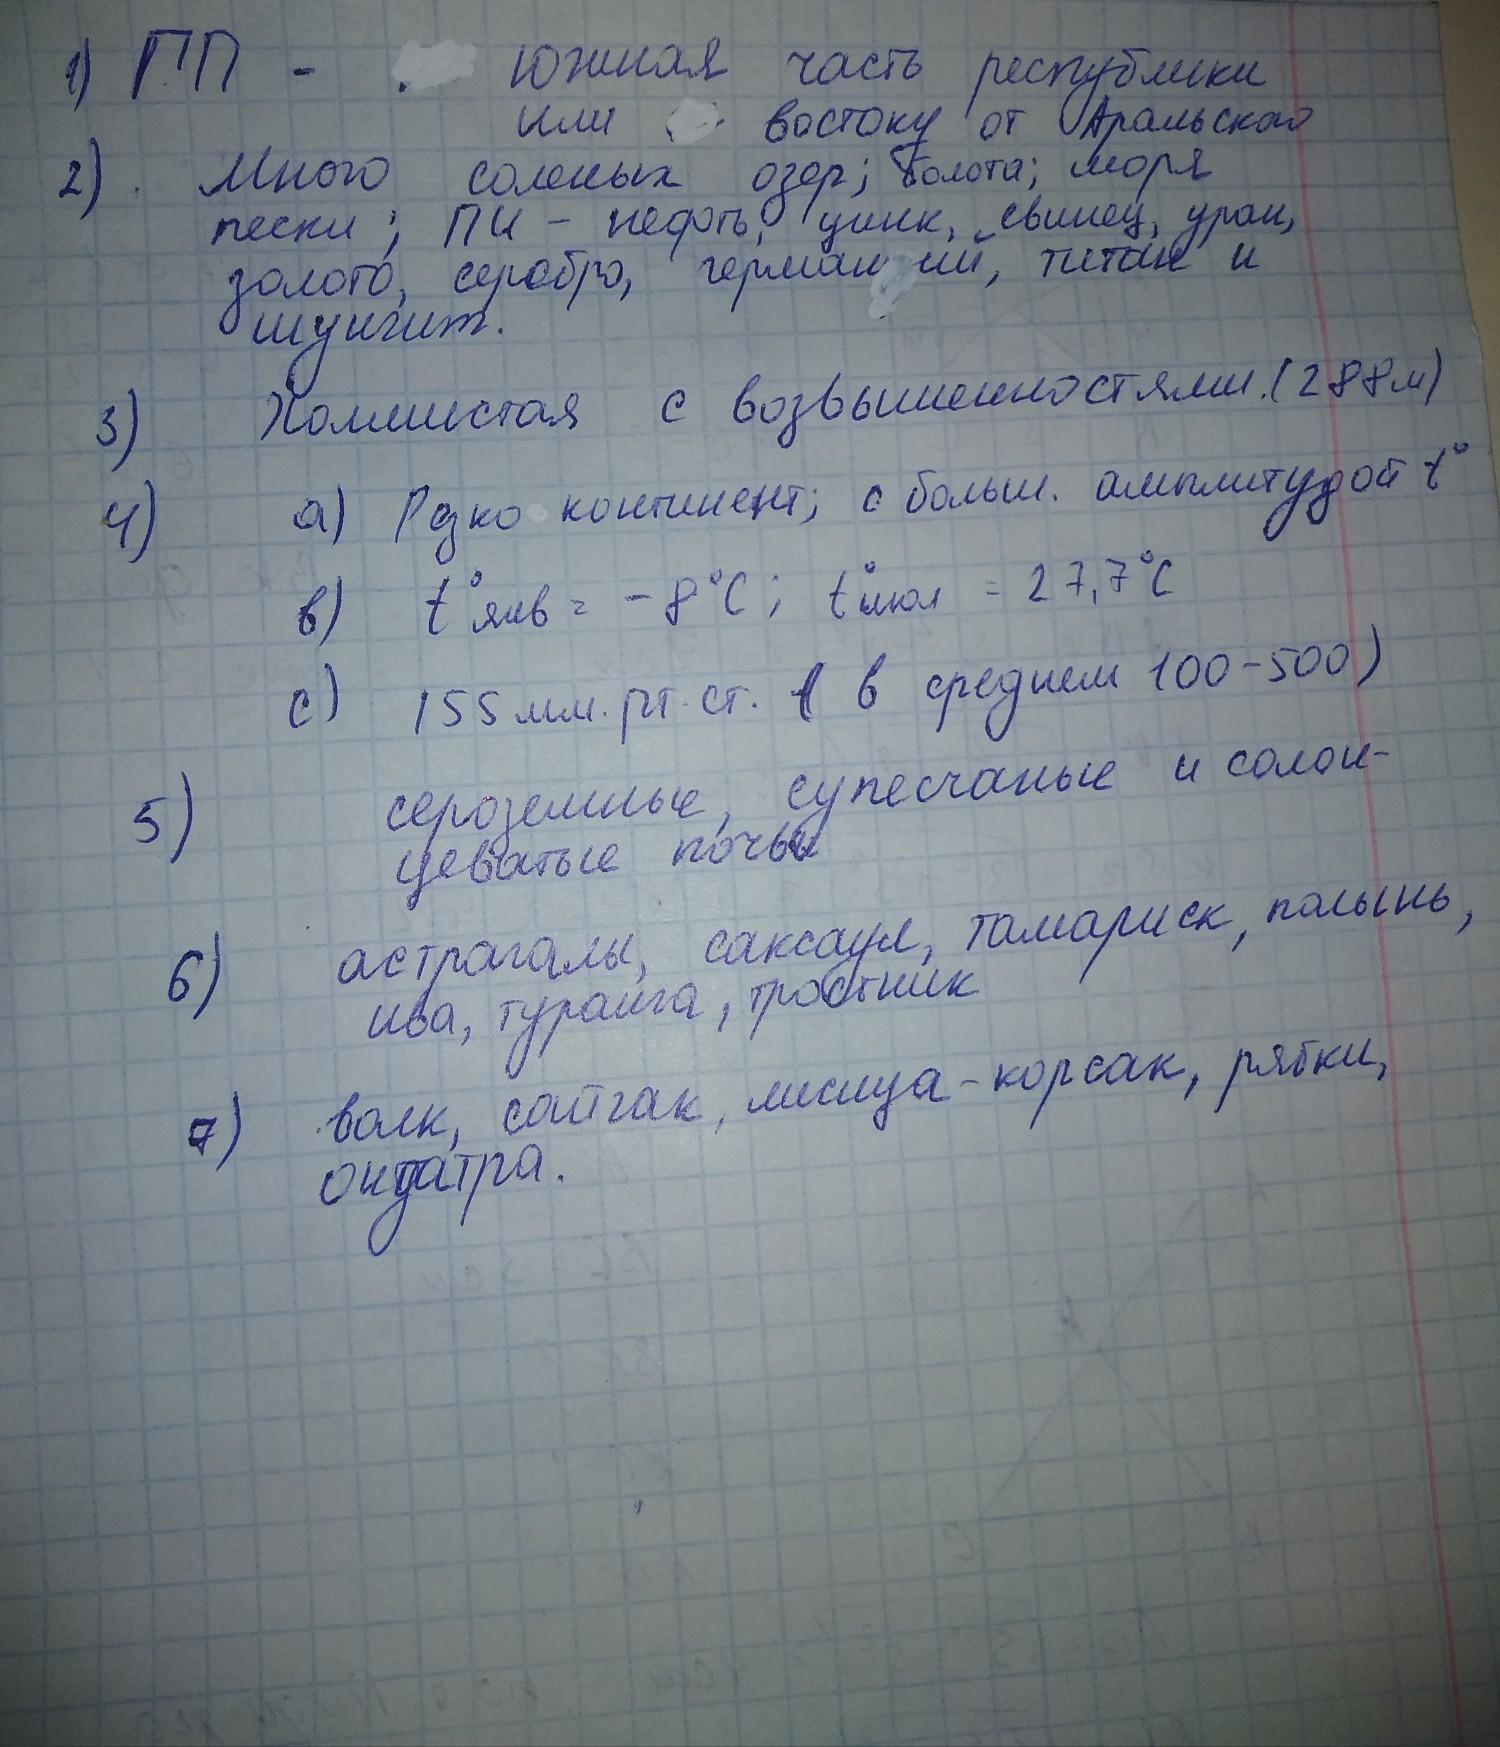 1) ПП - южная часть республики
или востоку от Аральского
2) Много соленых озер; болота; моря
пески; ПИ - нефть, цинк, свинец, уран,
золото, серебро, германий, титан и
шунгит.
3) Холмистая с возвышенностями. (288м)
4) а) Резко континент; с больш. амплитудой t°
в) t° янв = -8°C; t° июл = 27,7°C
с) 155 мм. рт. ст. (в среднем 100-500)
5) сероземные, супесчаные и солон-
цеватые почвы
6) астрагалы, саксаул, тамариск, полынь,
ива, туранга, тростник
7) волк, сайгак, лисица-корсак, рябки,
ондатра.